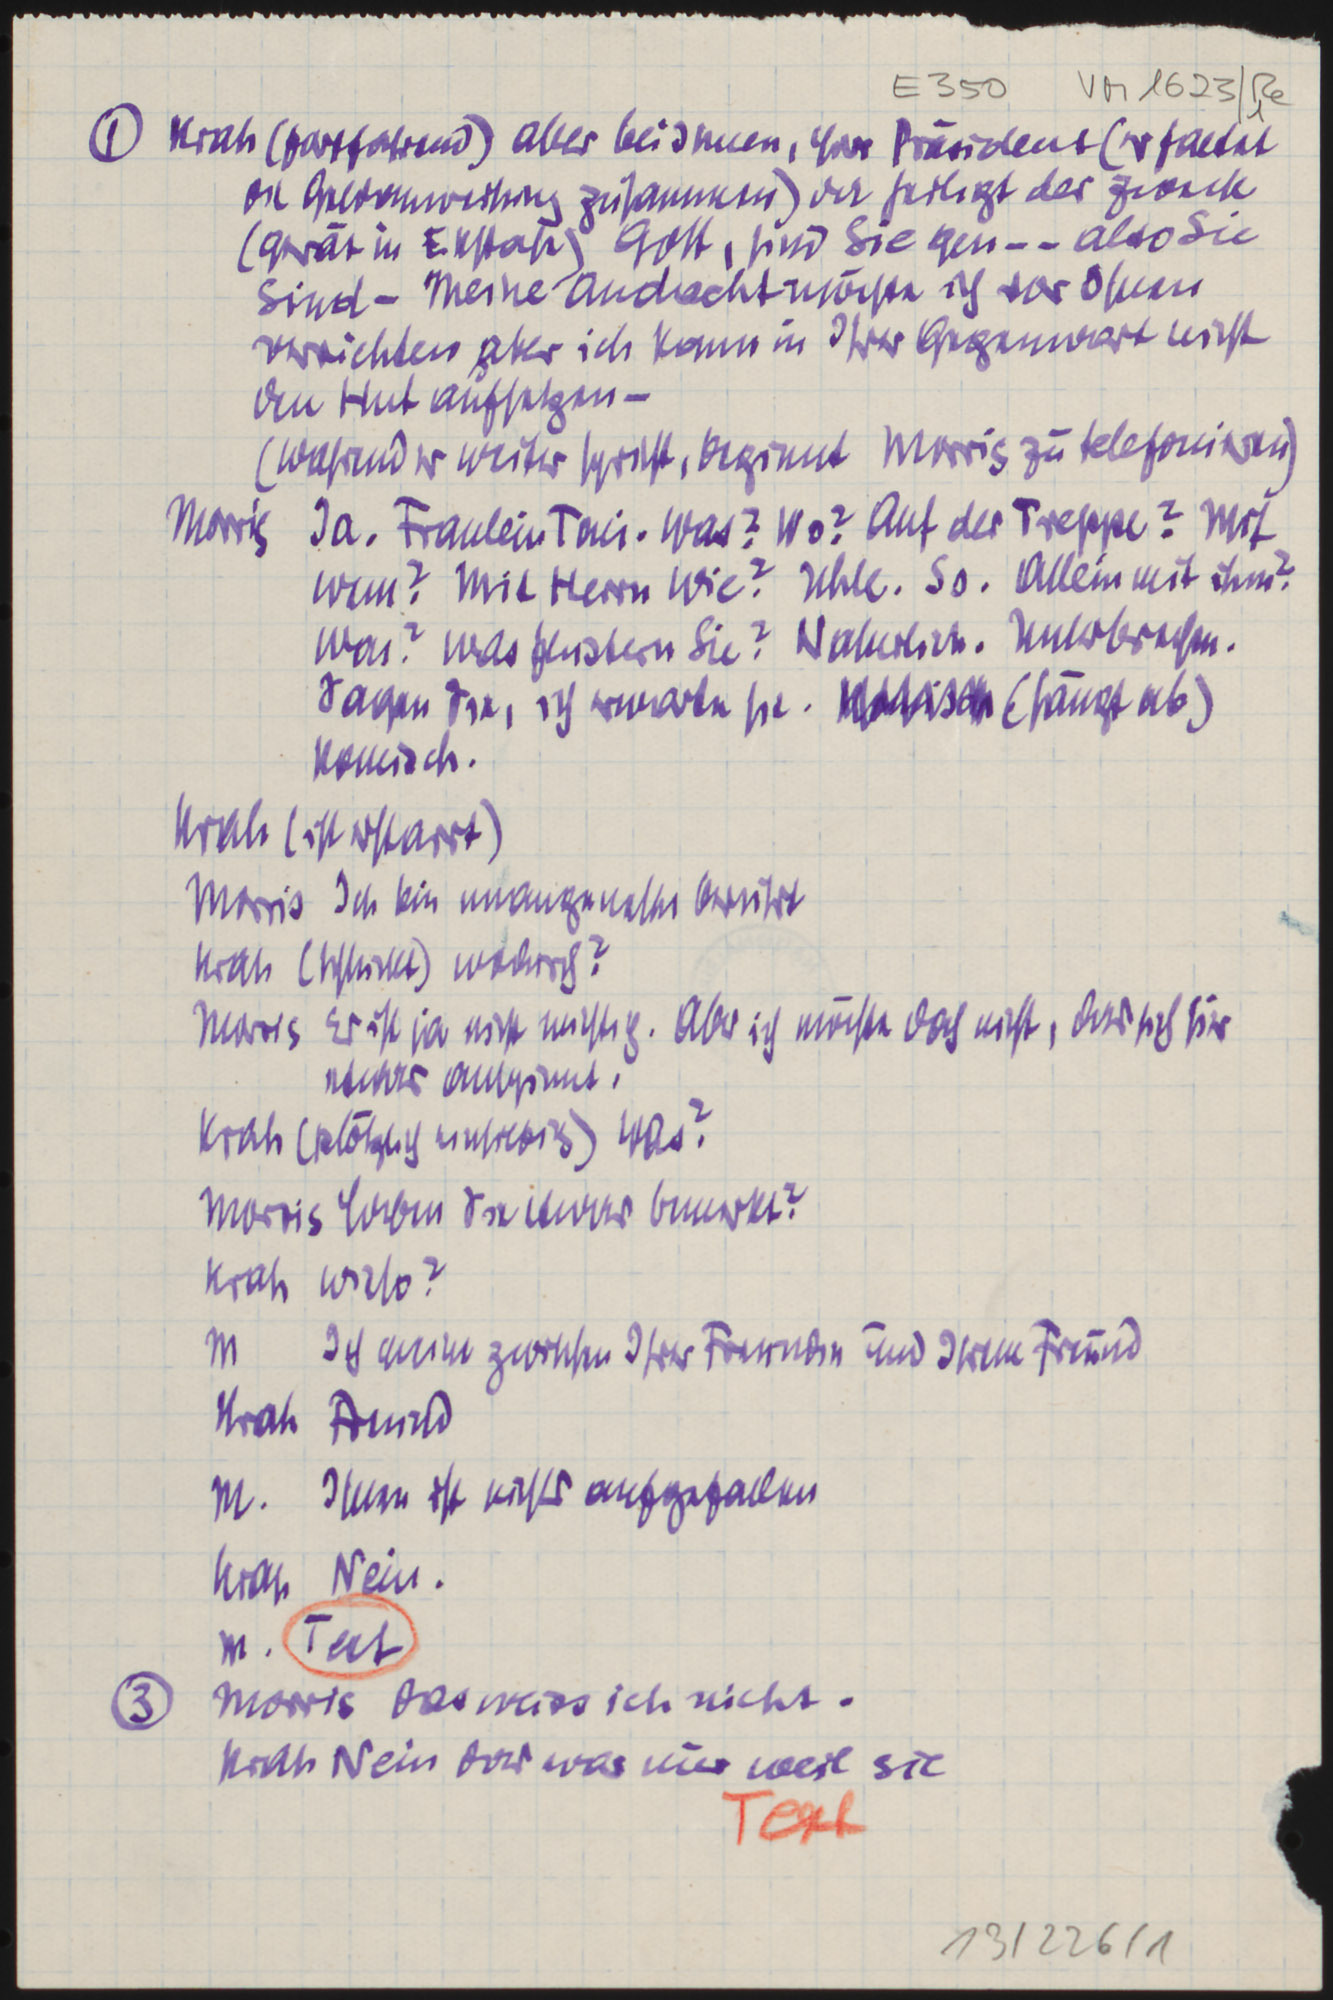 E 350 VM 1623/Re
① Krah (fortfahrend) aber bei Ihnen, Herr Präsident (er faltet
die Geldanweisung zusammen) da heiligt der Zweck
(gerät in Ekstase) Gott, sind Sie gen - - also Sie
Sind - Meine Andacht möchte ich vor Ihnen
verrichten aber ich kann in Ihrer Gegenwart nicht
den Hut aufsetzen -
(während er weiter spricht, beginnt Morris zu telefonieren)
Morris Ja. Fräulein Tai. Was? Wo? Auf der Treppe? Mit
wem? Mit Herrn Wie? Uhle. So. Allein mit ihm?
Was? Was flüstern Sie? Natürlich. Unterbrechen.
Sagen Sie, ich erwarte sie. (hängt ab)
Komisch.
Krah (ist erstarrt)
Morris Ich bin unangenehm berührt
Krah (schluckt) wodurch?
Morris Es ist ja nicht wichtig. Aber ich möchte doch nicht, dass sich hier
etwas anspinnt.
Krah (plötzlich) Was?
Morris Haben Sie etwas bemerkt?
Krah wieso?
M Ich meine zwischen Ihrer Freundin und Ihrem Freund
Krah Freund
M. Ihnen ist nichts aufgefallen
Krah Nein.
M. Text
③ Morris Das weiss ich nicht.
Krah Nein das war nur weil sie
Text
13/226/1